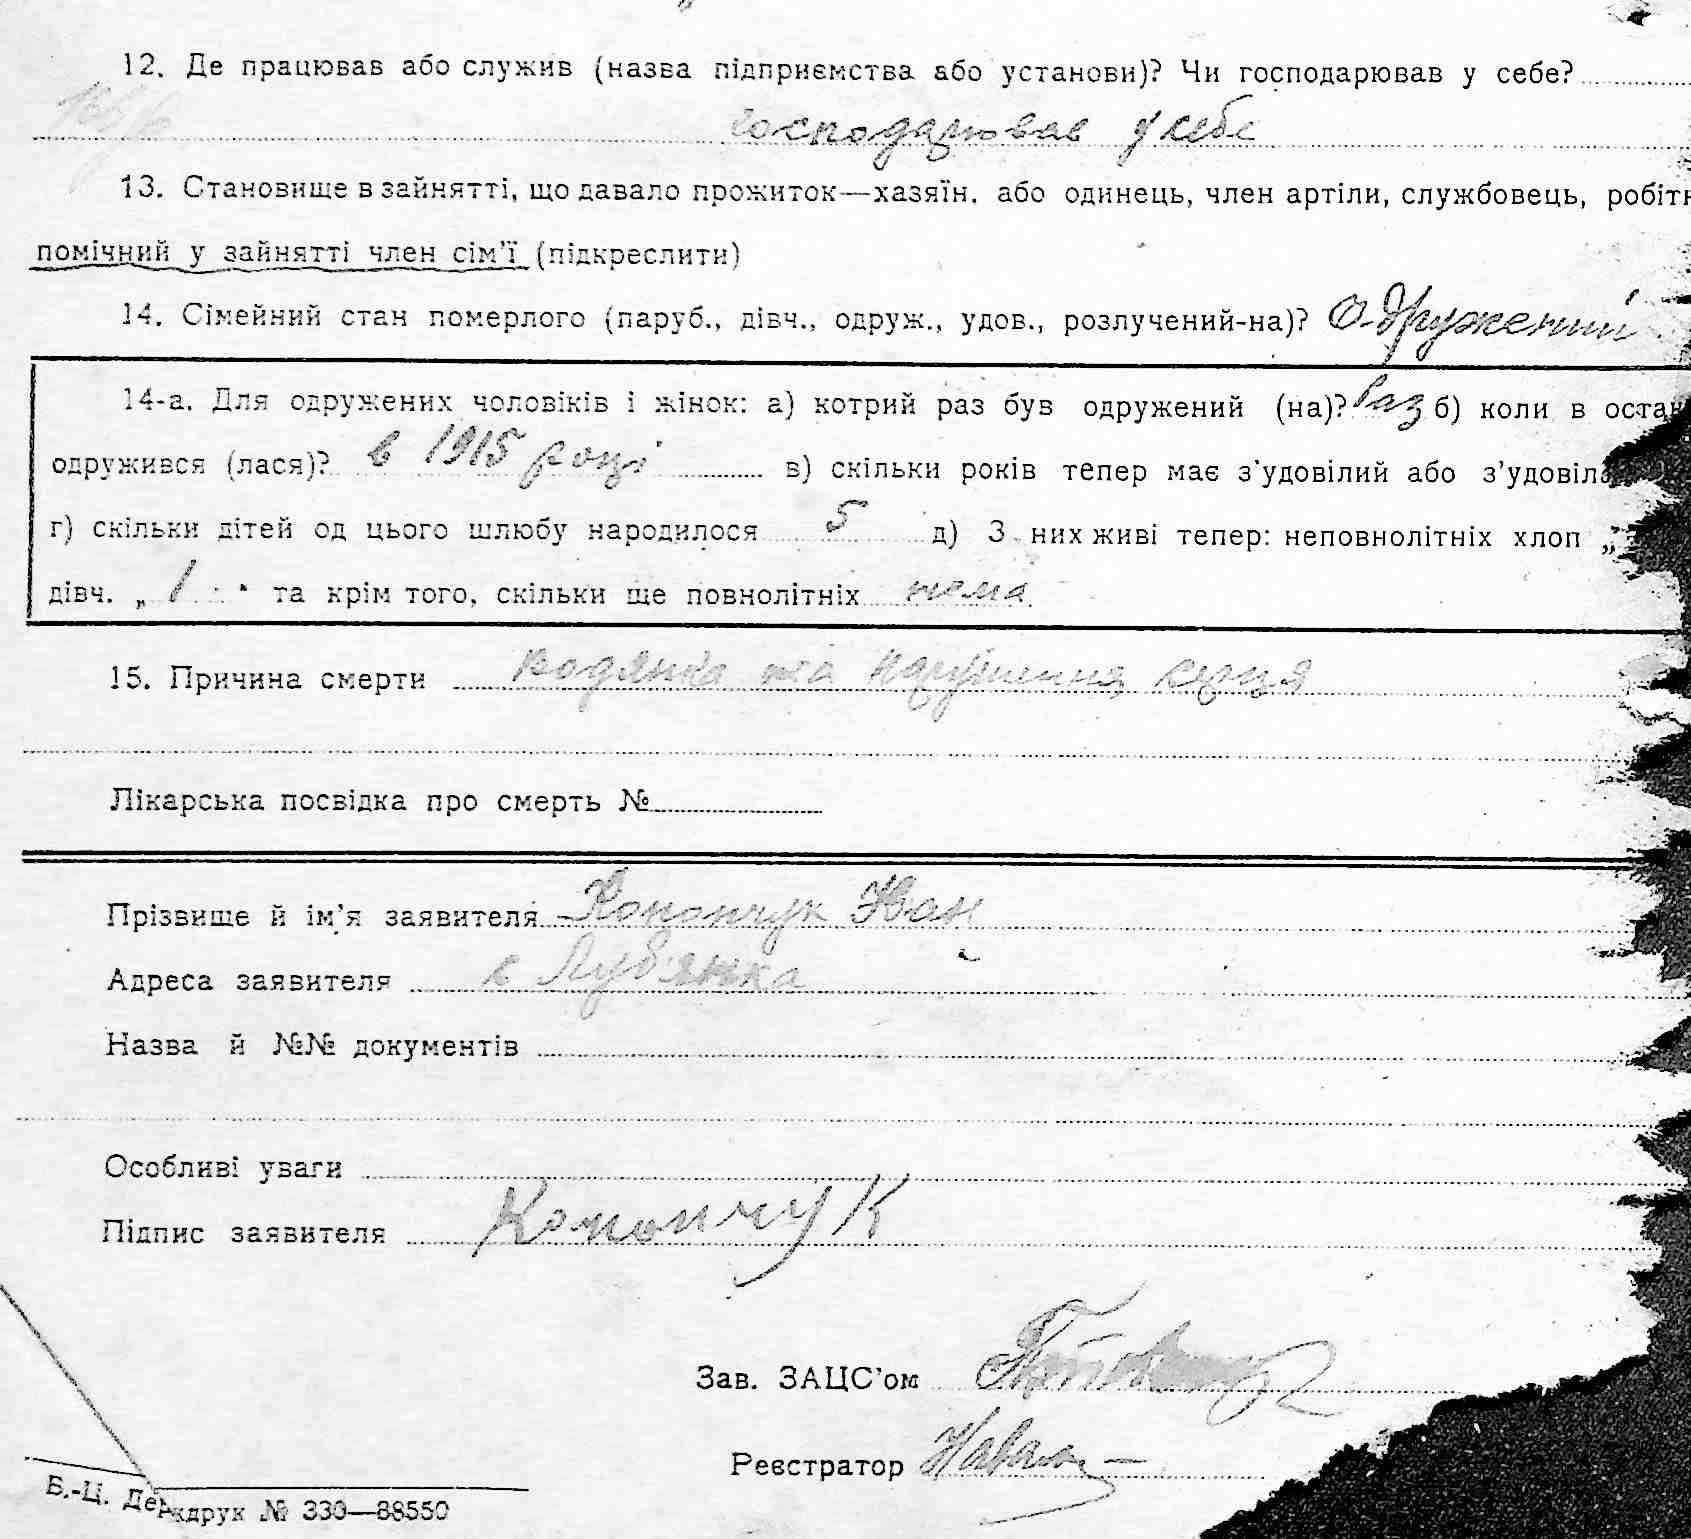 12. Де працював або служив (назва підприємства або установи)? Чи господарював у себе?
господарював у себе
13. Становище в зайнятті, що давало прожиток—хазяїн, або одинець, член артіли, службовець, робітн
помічний у зайнятті член сім'ї (підкреслити)
14. Сімейний стан померлого (паруб., дівч., одруж., удов., розлучений-на)? Одружений
14-а. Для одружених чоловіків і жінок: а) котрий раз був одружений (на)? Раз б) коли в остан
одружився (лася)? в 1915 році в) скільки років тепер має з'удовілий або з'удовіла
г) скільки дітей од цього шлюбу народилося 5 д) З них живі тепер: неповнолітніх хлоп „
дівч. „ 1 " та крім того, скільки ще повнолітніх нема
15. Причина смерти водянка та нарушення серця
Лікарська посвідка про смерть №
Прізвище й ім'я заявителя Конончук Іван
Адреса заявителя с Луб'янка
Назва й №№ документів
Особливі уваги
Підпис заявителя Конончук
Зав. ЗАЦС'ом
Реєстратор
Б.-Ц. Держдрук № 330—88550